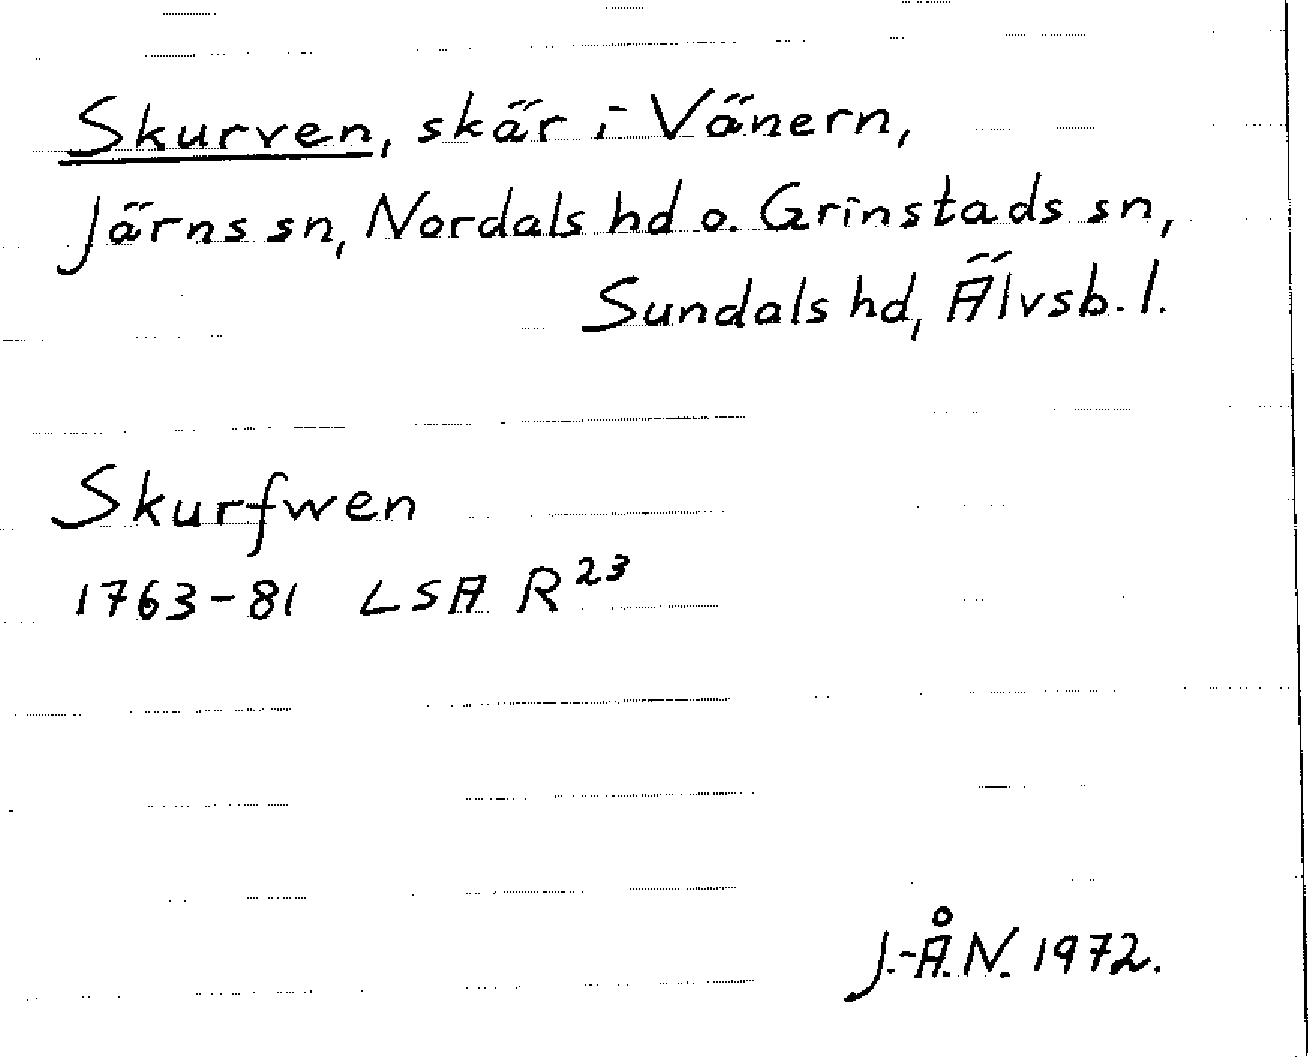 Skurven, skär i Vänern,
Järns sn, Nordals hd o. Grinstads sn,
Sundals hd, Älvsb. l.
Skurfwen
1763-81 LSA R 23
J.-Å.N. 1972.